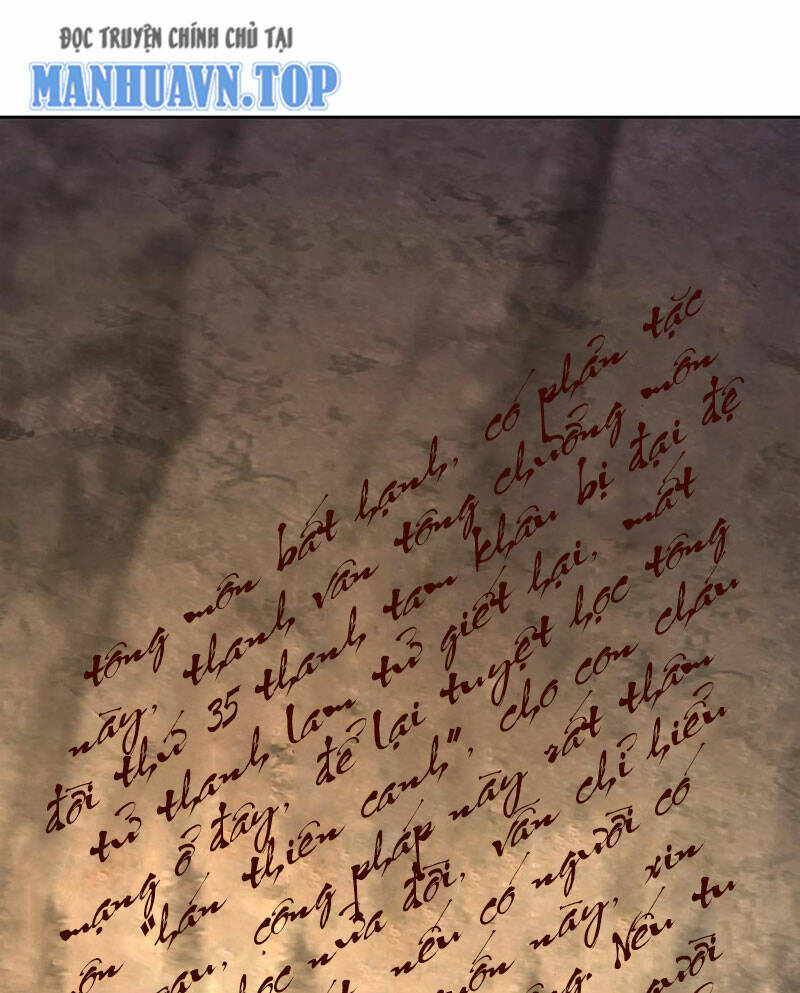 ĐỌC TRUYỆN CHÍNH CHỦ TẠI
MANHUAVN.TOP
tông môn bất hạnh, có phản tặc
này, thanh vân tông chưởng môn
đời thứ 35 thanh tam khâu bị đại đệ
tử thanh lam tử giết hại, mất
mạng ở đây, để lại tuyệt học tông
ôn "hán thiên canh", cho con cháu
au, công pháp này rất thâm
ọc nửa đời, vẫn chỉ hiểu
nếu có người có
ôn này, xin
ông. Nếu tu
người